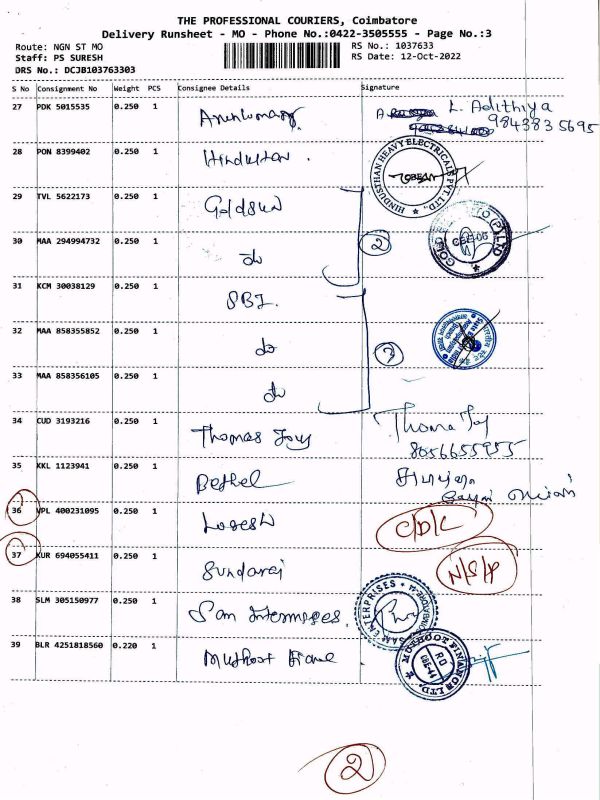 THE PROFESSIONAL COURIERS, Coimbatore
Delivery Runsheet - MO - Phone No.:0422-3505555 - Page No.:3
Route: NGN ST MO
RS No.: 1037633
Staff: PS SURESH
RS Date: 12-Oct-2022
DRS No.: DCJB103763303
S No Consignment No Weight PCS Consignee Details Signature
27 PDK 5015535 0.250 1 L. Adithiya
9843835695
28 PON 8399402 0.250 1 Hindustan.
HINDUSTHAN HEAVY ELECTRICALS PVT. LTD.
29 TVL 5622173 0.250 1 Goldsun
30 MAA 294994732 0.250 1 do 2
31 KCM 30038129 0.250 1 SBI.
32 MAA 858355852 0.250 1 do
33 MAA 858356105 0.250 1 do
34 CUD 3193216 0.250 1 Thomas Joy
8056655955
35 KKL 1123941 0.250 1 Bethel
36 VPL 400231095 0.250 1 Logesh C/D/L
37 KUR 694055411 0.250 1 Sundaraj N/S/P
38 SLM 305150977 0.250 1 Sam Enterprises.
SAM ENTERPRISES
39 BLR 4251818560 0.220 1 Muthoot
MUTHOOT FINANCE LTD.
RO
CBE-44
2